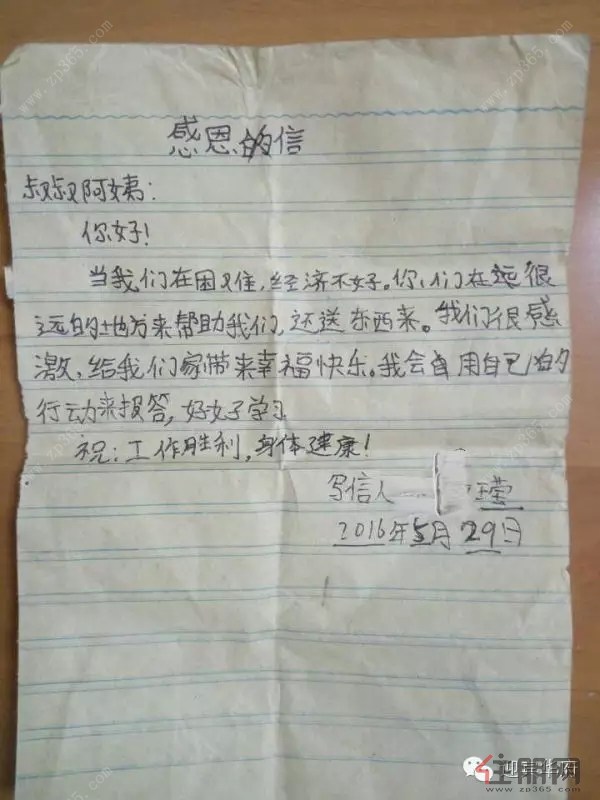 感恩的信
叔叔阿姨：
你好！
当我们在困难，经济不好。你们在远很
远的地方来帮助我们，还送东西来。我们很感
激，给我们家带来幸福快乐。我会自用自己的
行动来报答，好好学习
祝：工作胜利，身体建康！
写信人 王莹
2016年5月29日
迎建华府
注册网
www.zp365.com